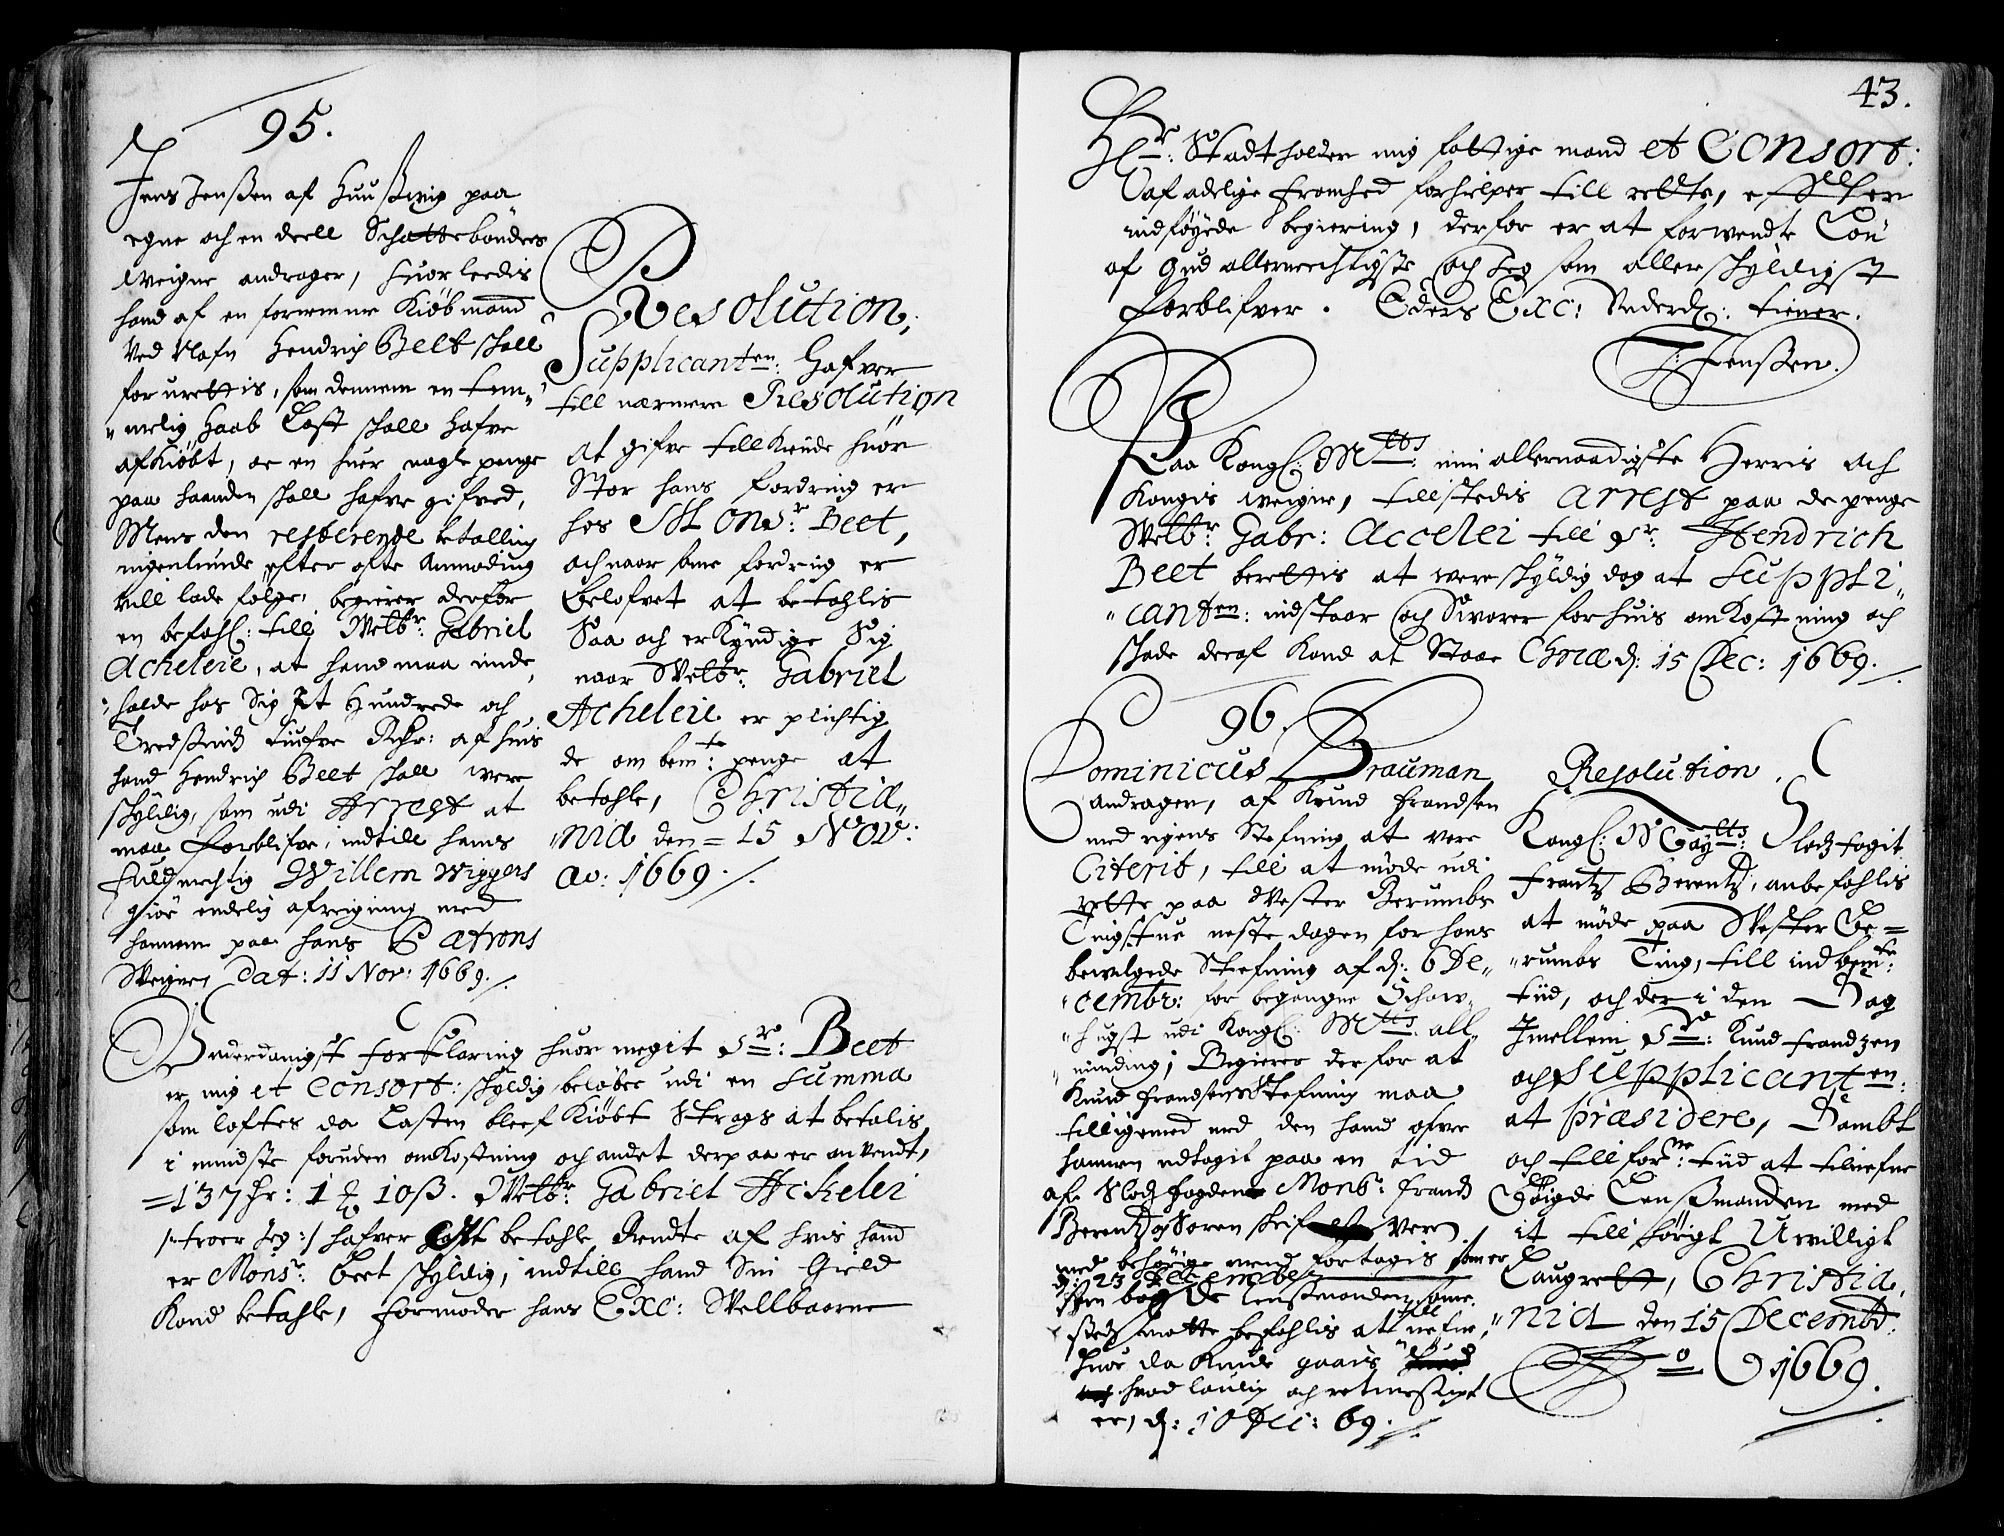 95.
Jens Jenßen af Huußwig paa
egne och en deell Schattebönders
Weigne andrager, huorleedis
hand af en fornemme Kiöbmand
Ved Nafn Hendrich Beet skall
forurettis, som dennem en tem-
melig Haab Last skall hafve
afkiöbt, oc en huer nogle penge
paa haanden skall hafve gifved,
Mens den resterende betalling
ingenlunde efter ofte Anmoding
vill lade følge, begierer derfor
en befahl: till Welbr: Gabriel
Acheleie, at hand maa inde,
holde hos Sig Et Hundrede och
Tredßinds tiufve Rdr: af huis
hand Hendrich Beet skall were
skyldig, som udi Arrest at
maa forblifve, indtill hans
fuldmechtig Willem Wiggers
giör endelig afreigning med
hannem paa hans Patrons
Weigne, Dat: 11 Nov: 1669.
Resolution,
Supplicanten: hafver
till nærmere Resolution
at gifve tillkiende huor
Stor hans fordring er
hos Monsr: Beet,
och naar same fordring er
belofvet at betahlis
Saa och erkyndige Sig
naar Welbr: Gabriel
Acheleie er plichtig
de ombemte: penge at
betahle, Christia-
nia den 15 Nov:
Ao: 1669.
Underdanigst forklaring huor megit Sr: Beet
er mig et Consort: skyldig beløber udi en Summa
som loftes da Lasten bleef Kiöbt Strags at betalis,
i mindste foruden omkostning och andet derpaa er anvendt,
137 Rr: 1 10ß. Welbr: Gabriel Ackelei
/: troer Jeg :/ hafver lofft betahle Rendte af hvis hand
er Monsr: Beet skyldig, indtill hand Sin Gield
Kand betahle, formoder hans Exc: Wellbaarne
43.
Hr: Stadtholder mig fattige mand et Consort:
af adelige fromhed forhielper till rette, effter
indföyede begiering, derfor er at forwendte Lön
af Gud allermechtigste och Jeg som allerskyldigst
forblifver. Eders Exc: Underd: tiener.
J: Jenßen.
Paa Kongl: Mtts: min allernaadigste Herris och
Kongis weigne, tillstedis Arrest paa de penge
Welbr: Gabr: Accelei till Sr: Hendrich
Beet berettis at were skyldig dog at Suppli-
canten: indstaar och Swarer for huis omkostning och
skade deraf kand at Staae Chria d: 15 Dec: 1669.
96.
Dominicus Brauman
andrager, af Knud Frandsen
med rigens Stefning at vere
Citerit, till at møde udi
rette paa Wester Berumbs
Tingstue neste dagen for hans
bewilgede Stefning af d: 6 De-
cembr: for begangne Schow-
hugst udi Kongl: Mtts: all-
minding, Begierer derfor at
Knud Frandsens Stefning maa
tilligemed med den hand ofver
hannem udtagit paa en tid
af Slodsfogden Monsr: Frands
Berends og Soren skrif vere
med behörige mend fortagis som er
d: 23 December
Men bøygde lensmanden same
steds motte befahlis at till nefne,
huor da Kunde gaais
hvad lovlig och retmessigt
er, d: 10 Dec: 69.
Resolution.
Kongl: Maytts: Slodsfogit
Frantz Berentz, anbefahlis
at møde paa Wester Be-
rumbs Ting, till indbemte:
tiid, och der i den Sag
Imellem Sr: Knud Frandzen
och Supplicanten:
at præsidere, Sambt
och till forne: tiid at tilnefne
Bøigde Lenßmanden med
it till børigt Uwilligt
Laugrett, Christia,
nia den 15 Decembr:
Ao 1669.